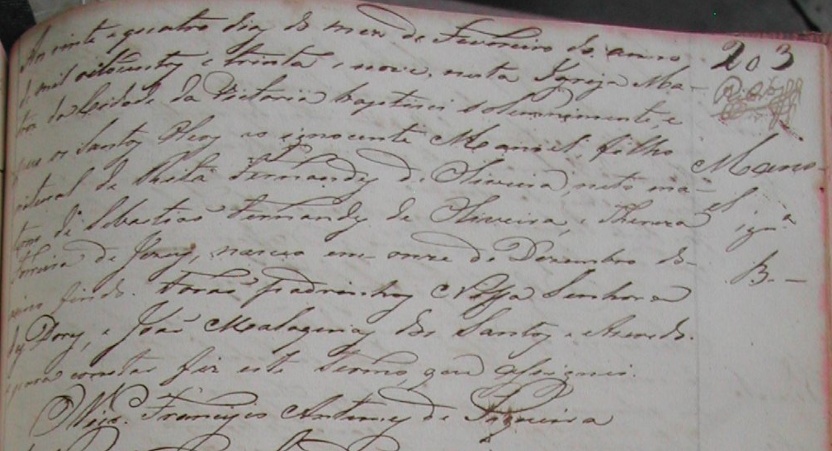 Aos vinte e quatro dias do mez de Fevereiro do anno
de mil oitocentos e trinta e nove, nesta Igreja Ma-
triz da Cidade da Victoria baptizei solemnimente, e
puz os Santos Oleos ao innocente Manoel, filho
natural de Rita Fernandes de Oliveira, neto ma-
terno de Sebastiaõ Fernandes de Oliveira, e Thereza
de Jesus, nasceo em onze de Dezembro do
findo. Foraõ padrinhos Nossa Senhora
das Dores, e Joaõ dos Santos e Azeredo.
E para constar fiz este termo, que assignei.
Vigr.º Francisco Antunes de Siqueira
203
Mano-
el
B.